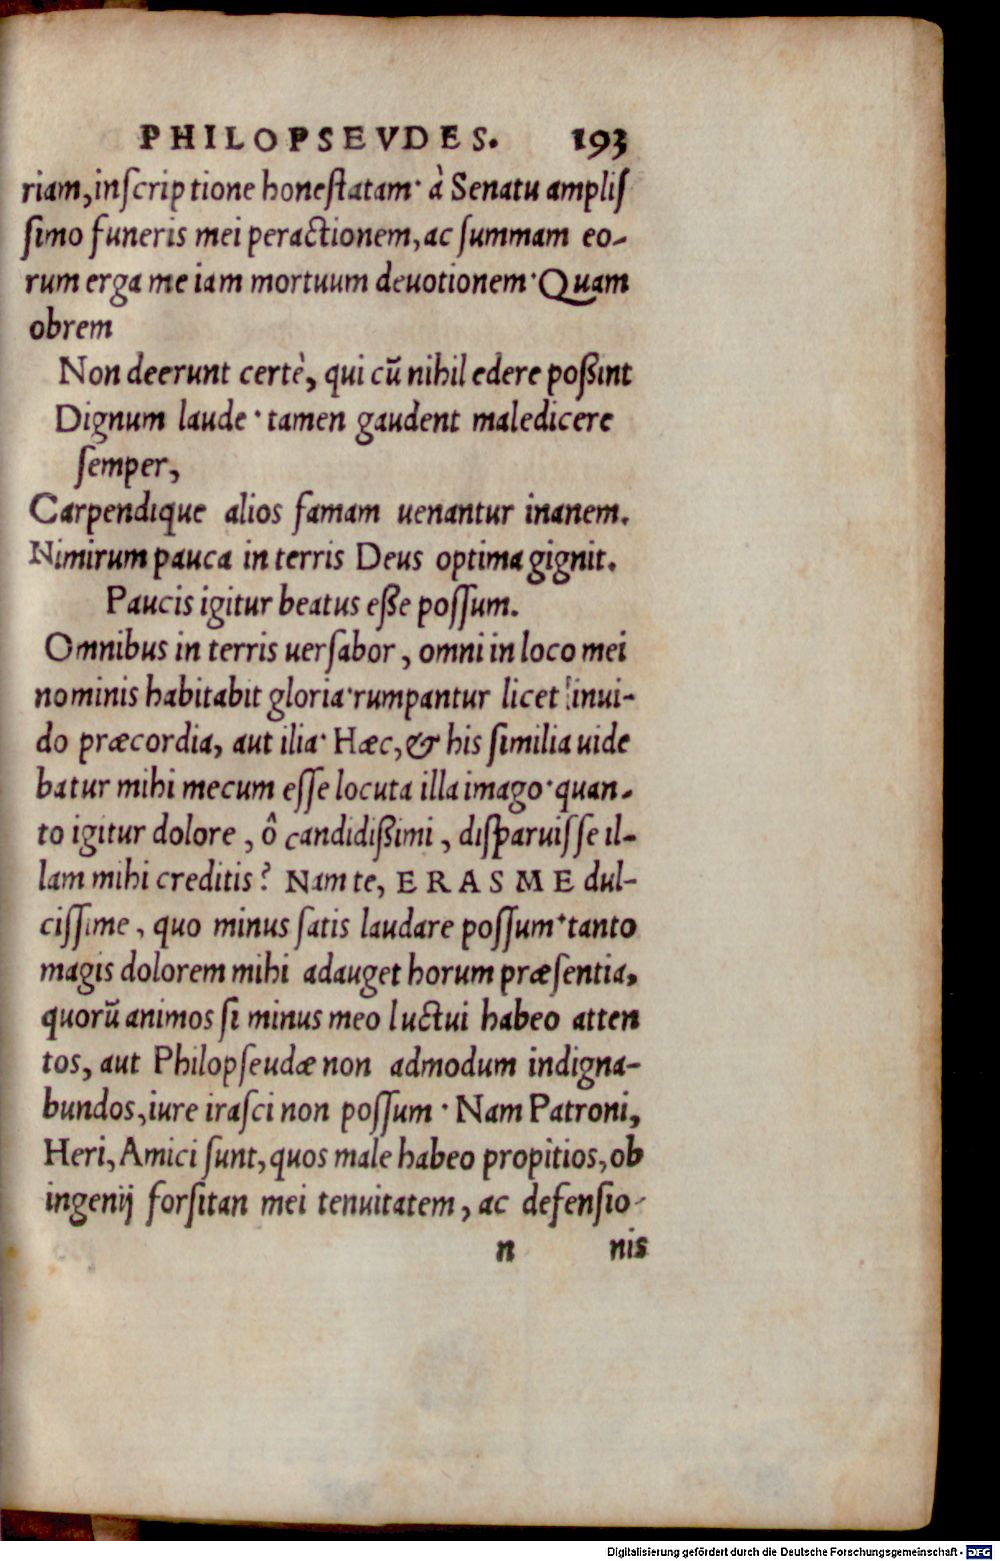 PHILOPSEVDES. 193
riam, inſcriptione honeſtatam· à Senatu ampliſ
ſimo funeris mei peractionem, ac ſummam eo-
rum erga me iam mortuum deuotionem· Quam
obrem
Non deerunt certè, qui cū nihil edere poßint
Dignum laude· tamen gaudent maledicere
ſemper,
Carpendique alios famam uenantur inanem.
Nimirum pauca in terris Deus optima gignit.
Paucis igitur beatus eße poſſum.
Omnibus in terris uerſabor, omni in loco mei
nominis habitabit gloria· rumpantur licet inui-
do præcordia, aut ilia· Hæc, & his ſimilia uide
batur mihi mecum eſſe locuta illa imago· quan-
to igitur dolore, ô candidißimi, diſparuiſſe il-
lam mihi creditis? Nam te, ERASME dul-
ciſſime, quo minus ſatis laudare poſſum· tanto
magis dolorem mihi adauget horum præſentia,
quorū animos ſi minus meo luctui habeo atten
tos, aut Philopſeudæ non admodum indigna-
bundos, iure iraſci non poſſum· Nam Patroni,
Heri, Amici ſunt, quos male habeo propitios, ob
ingenij forſitan mei tenuitatem, ac defenſio-
n nis
Digitalisierung gefördert durch die Deutsche Forschungsgemeinschaft - DFG